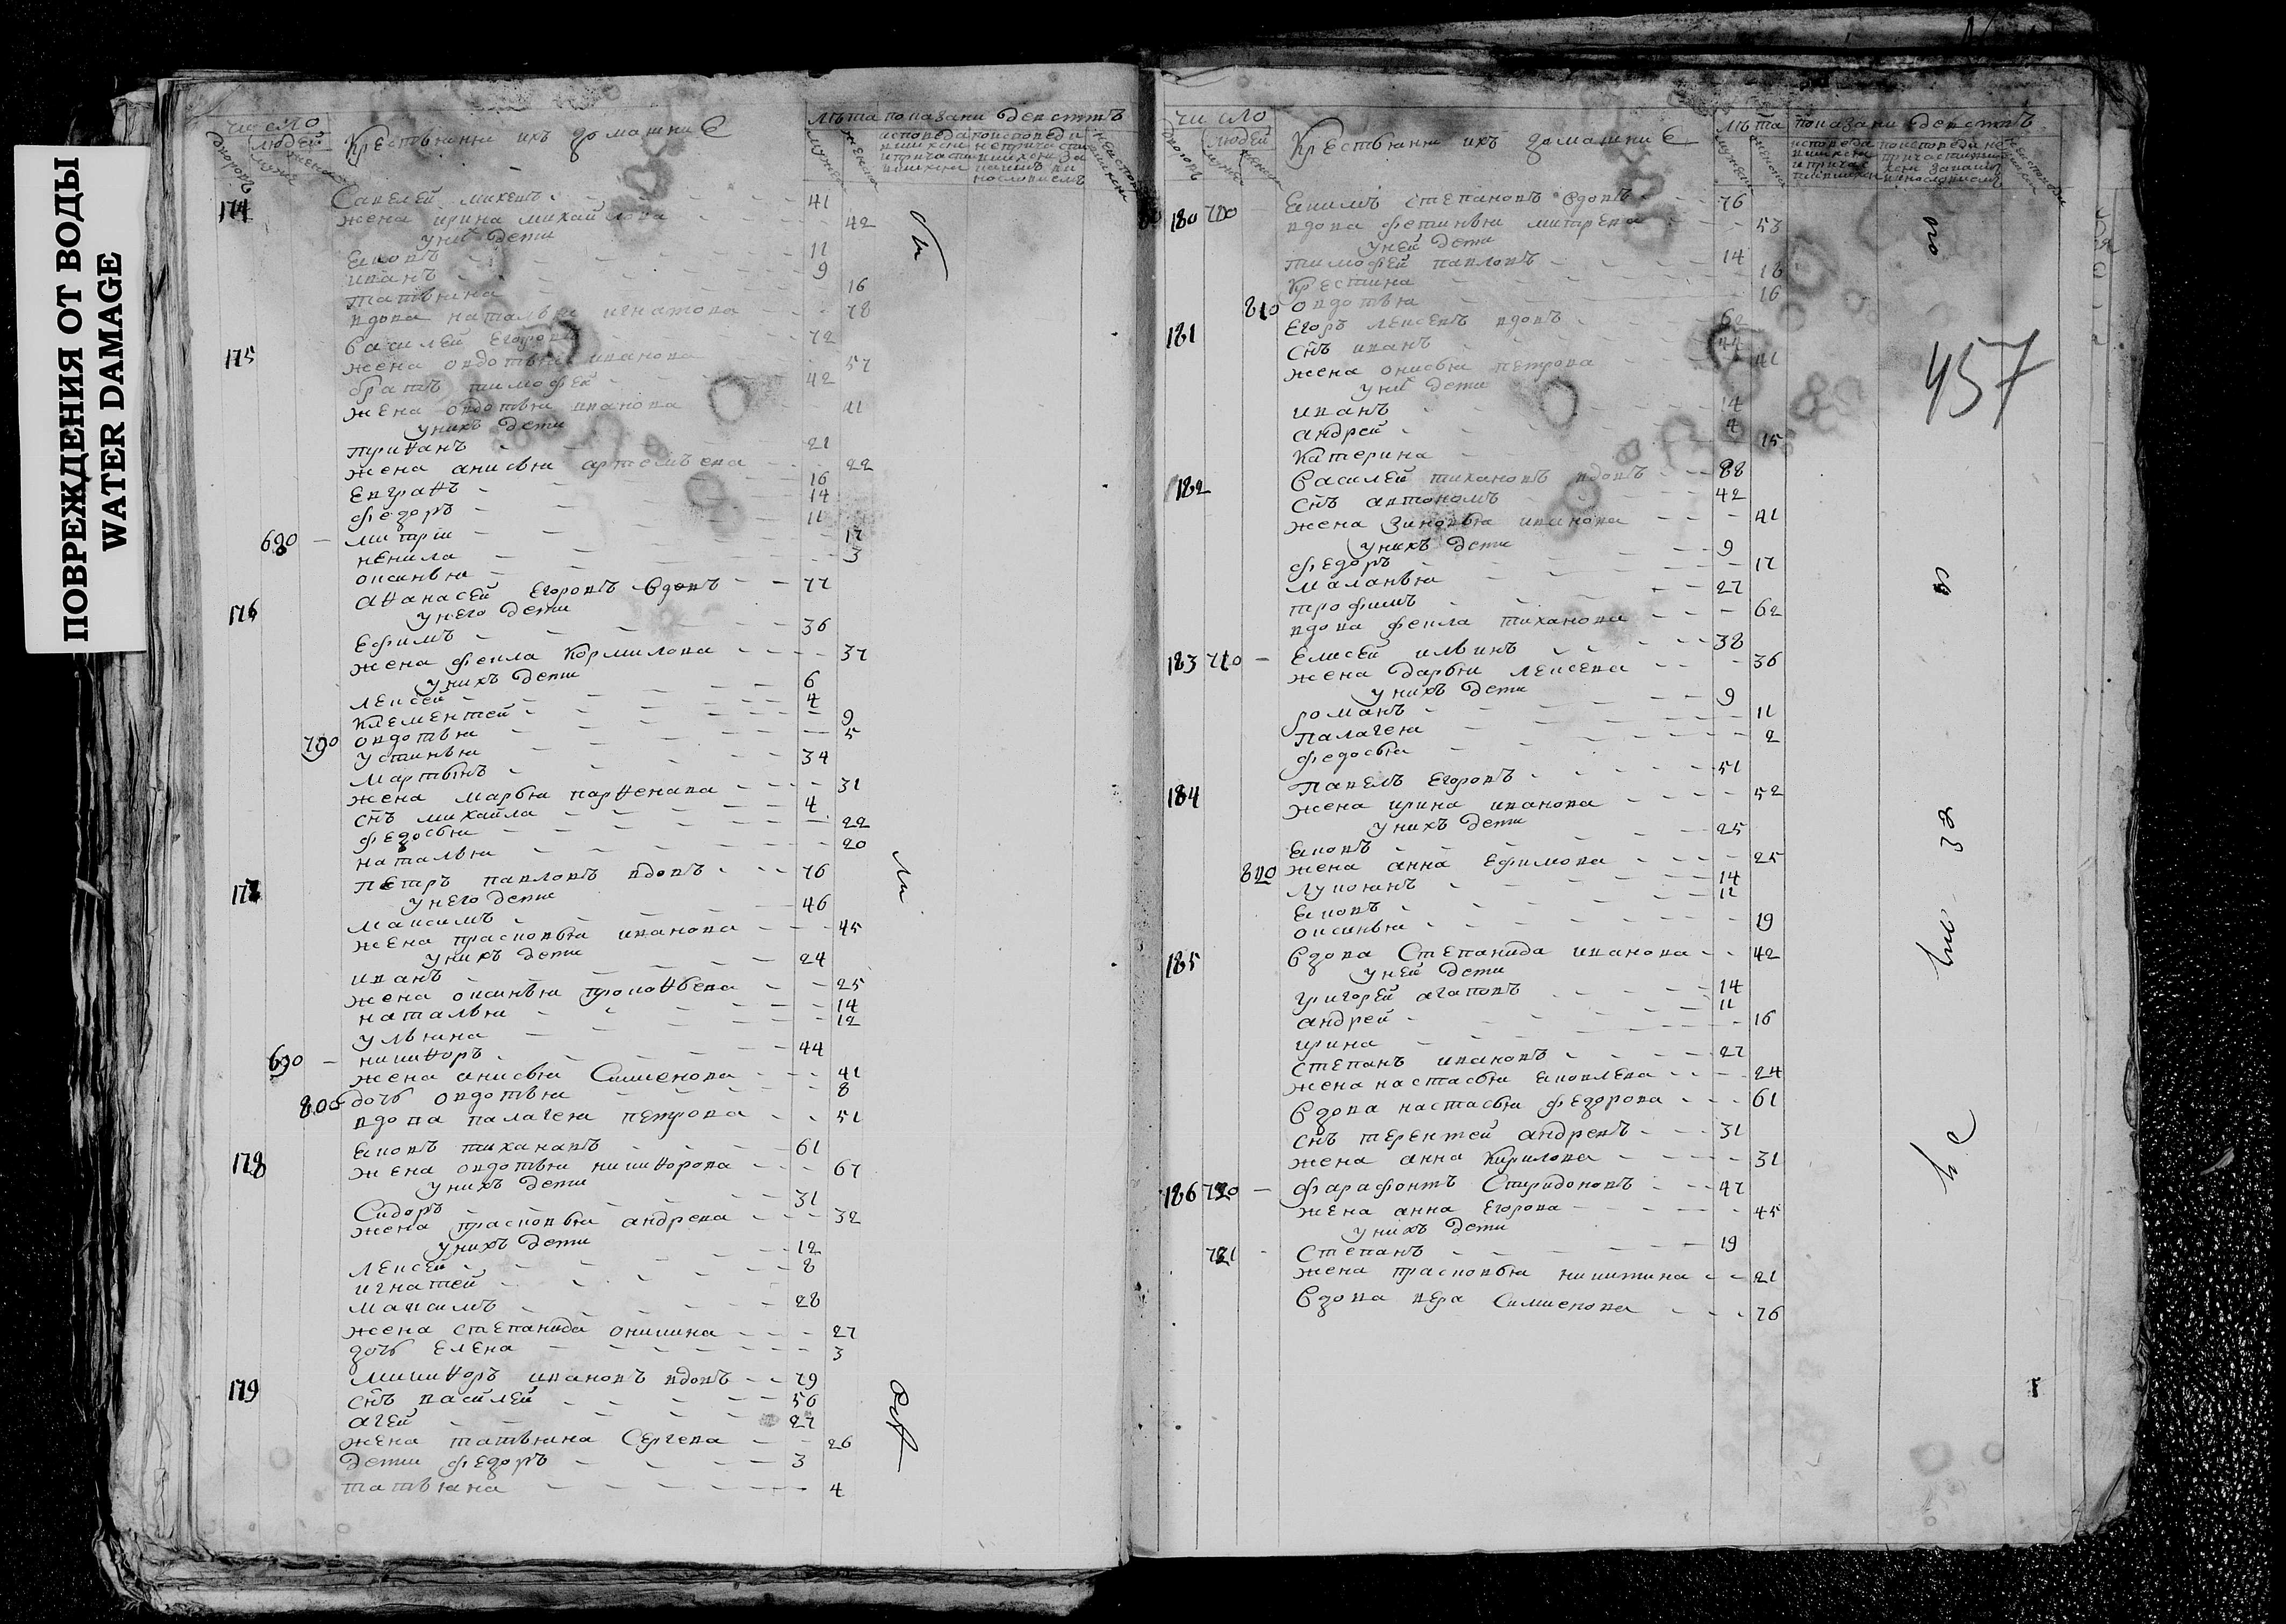 ПОВРЕЖДЕНИЯ ОТ ВОДЫ
WATER DAMAGE
число
людей
Крестьянни ихъ домашние
лѣта показани действъ
174 Савелей микевъ 41
жена ирина михайлова 42
у них дети
яковъ 11
иванъ 9
татьяна 16
вдова наталья игнатова 78
175 Василей Егоровъ 72
жена овдотья иванова 57
братъ тимофей 42
жена овдотья иванова 41
у нихъ дети
триѳанъ 21
жена анисья артемьева 22
Евграѳъ 16
федоръ 14
680 митрій 11
ненила 17
оксинья 3
176 аѳанасей Егоровъ вдовъ 77
у него дети
Ефимъ 36
жена фекла Кормилова 37
у нихъ дети
лексей 6
клементей 4
790 овдотья 9
устинья 5
мартынъ 34
жена марья парѳенава 31
снъ михайла 4
федосья 22
наталья 20
177 петръ павловъ вдовъ 76
у него дети
максимъ 46
жена прасковья иванова 45
у нихъ дети
иванъ 24
жена оксинья прокоѳьева 25
наталья 14
ульяна 12
690 никиѳоръ 44
жена анисья Симиенова 41
800 дочь овдотья 8
вдова палагея петрова 51
178 яковъ тиханавъ 61
жена овдотья никиѳорова 67
у нихъ дети
Сидоръ 31
жена прасковья андрева 32
у нихъ дети
лексей 12
игнатей 8
максимъ 28
жена степанида оникина 27
дочь Елена 3
179 микиѳоръ ивановъ вдовъ 79
снъ василей 56
агей 27
жена татьяна Сергева 26
дети федоръ 3
татьяна 4
число
людей
Крестьянни ихъ домашние
лѣта показани действъ
457
180 700 якимъ степановъ вдовъ 76
вдова фетинья митрева 53
у ней дети
тимофей павловъ 14
крестина 18
810 овдотья 16
181 Егоръ лексевъ вдовъ 62
снъ иванъ 44
жена онисья петрова 41
у них дети
иванъ 14
андрей 4
Катерина 15
182 Василей тихановъ вдовъ 88
снъ автономъ 42
жена зиновья иванова 41
у нихъ дети
федоръ 9
маланья 17
трофимъ 27
вдова фекла тиханова 62
183 710 Елисей ильинъ 38
жена дарья лексева 36
у нихъ дети
романъ 9
палагея 11
федосья 2
184 Павелъ Егоровъ 51
жена ирина иванова 52
у нихъ дети
яковъ 25
820 жена анна Ефимова 25
лукоянъ 14
яковъ 11
оксинья 19
185 Вдова Степанида иванова 42
у ней дети
григорей агаповъ 14
андрей 11
ирина 16
степанъ ивановъ 27
жена настасья яковлева 24
Вдова настасья федорова 61
снъ терентей андревъ 31
жена анна Кирилова 31
186 720 фарафонтъ Спиридоновъ 47
жена анна Егорова 45
у нихъ дети
721 Степанъ 19
жена прасковья никитина 21
Вдова вера Симиенова 76